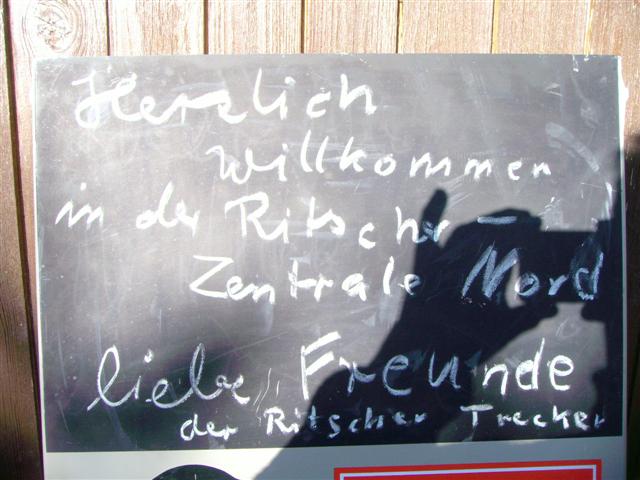 Herzlich
Willkommen
in der Ritscher -
Zentrale Nord
liebe Freunde
der Ritscher Trecker